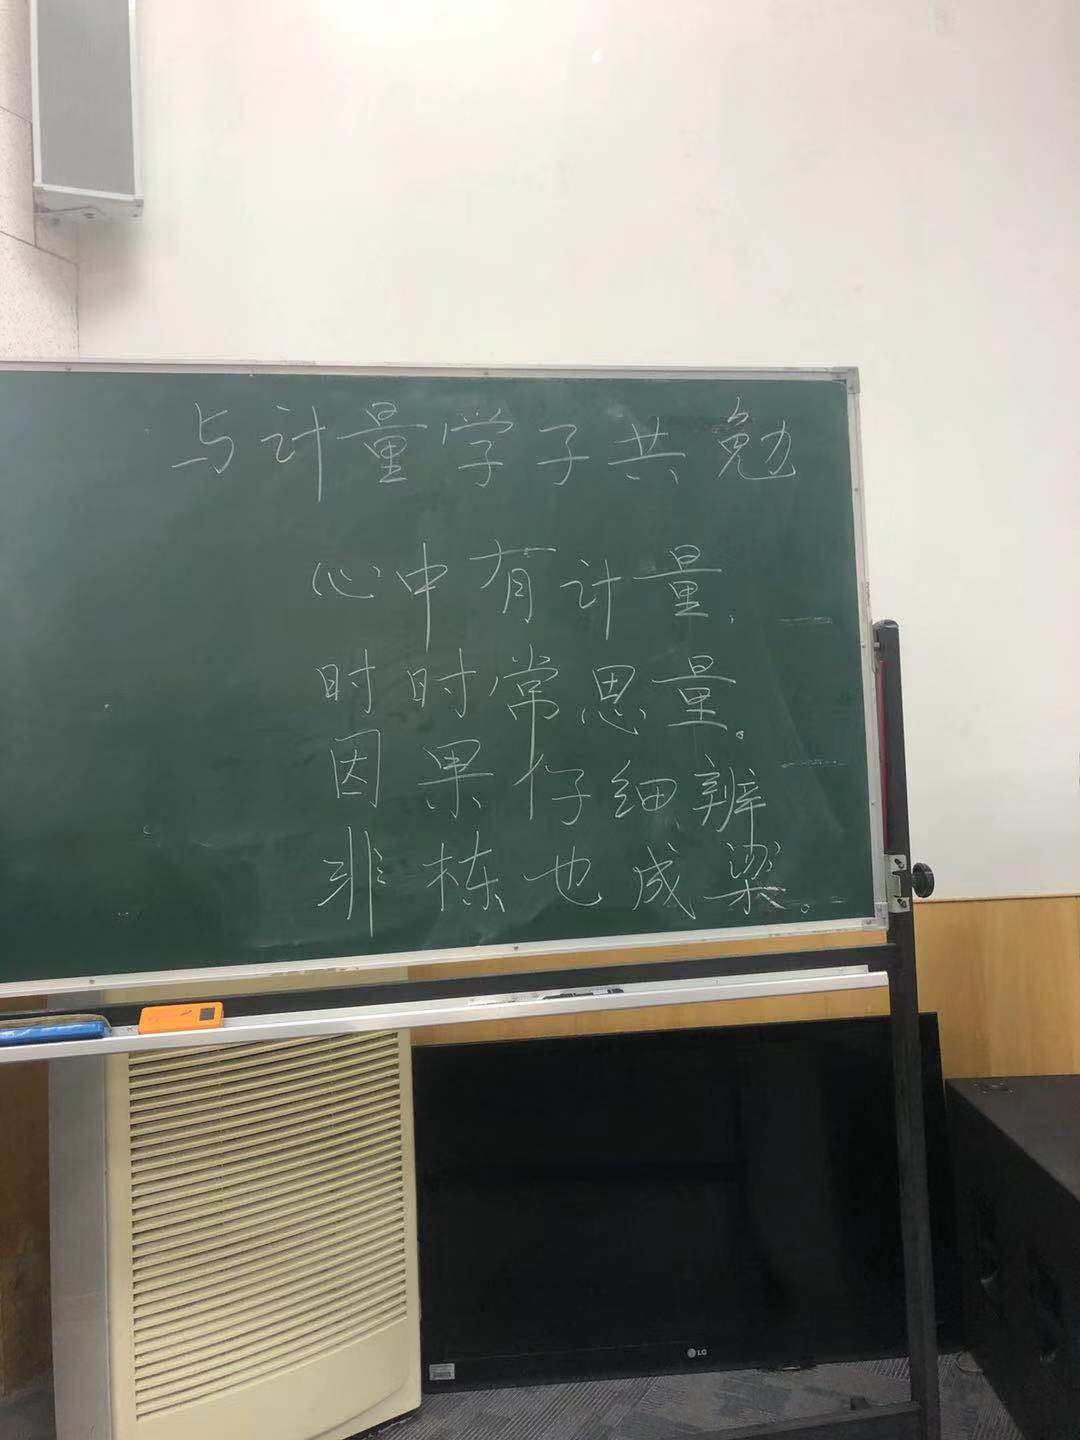 与计量学子共勉
心中有计量,
时时常思量。
因果仔细辨
非栋也成梁。
LG